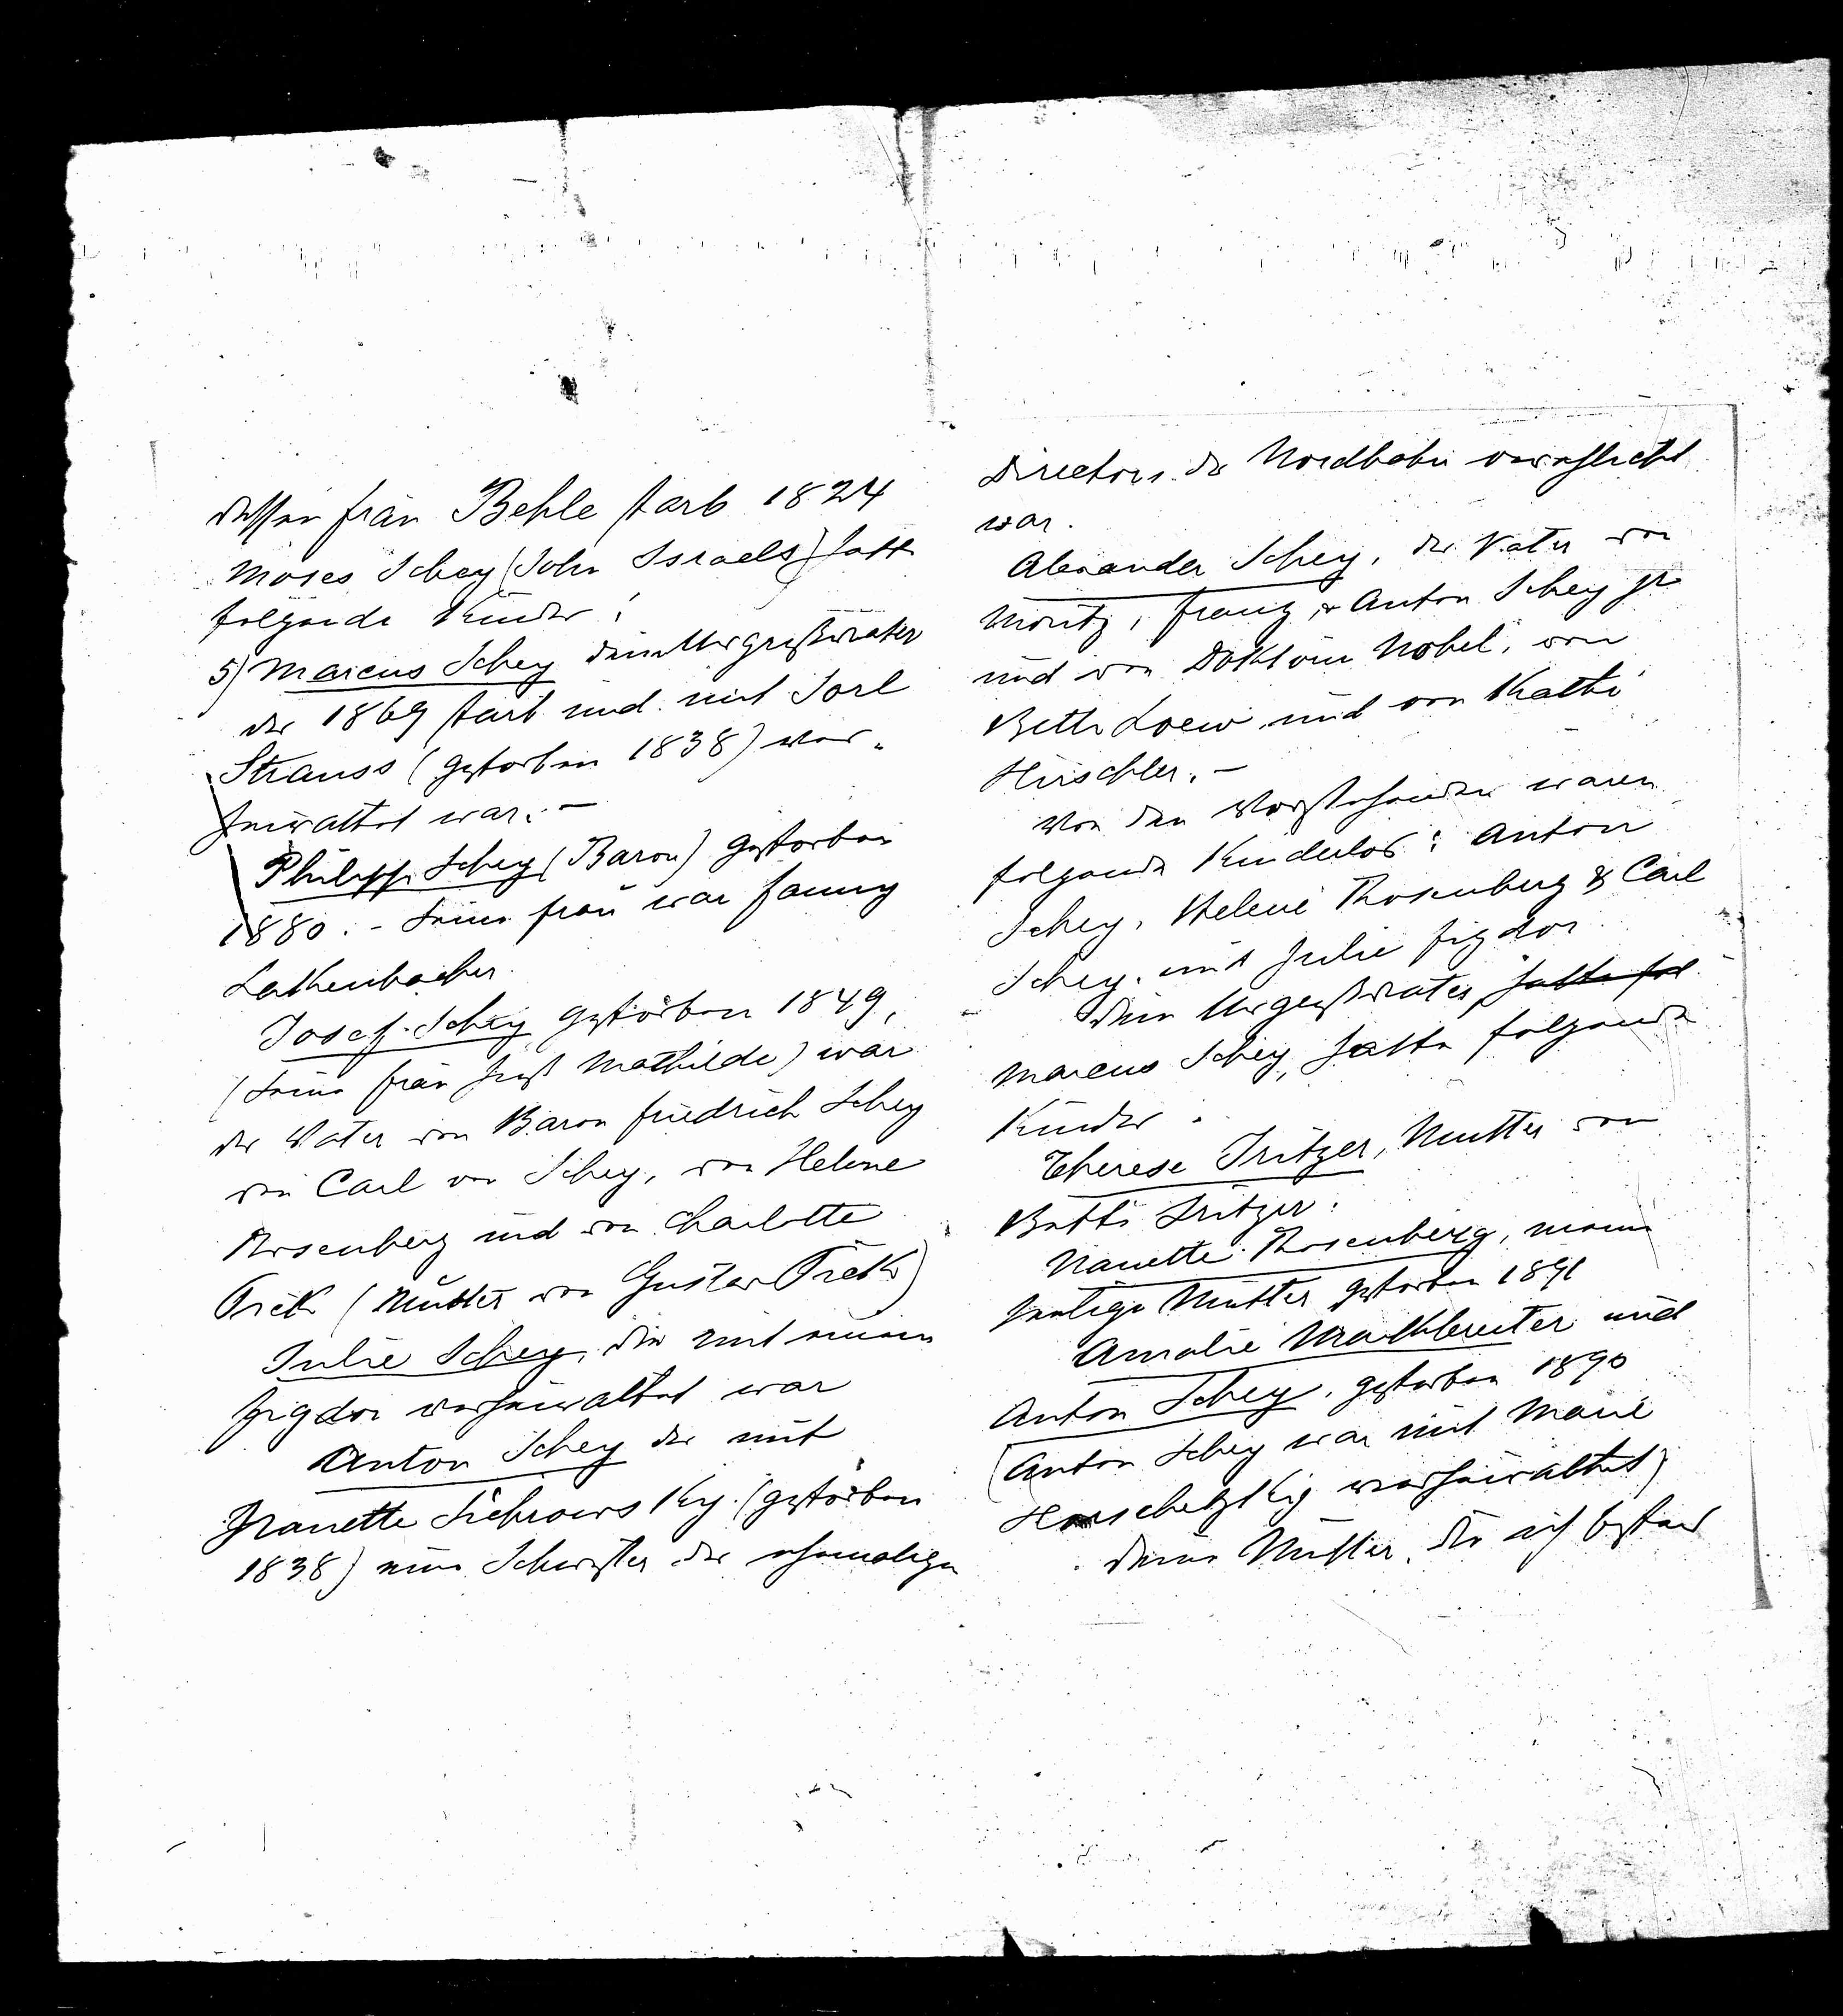 dessen Frau Behle starb 1824
Moses Schey (Sohn Israels) hatte
folgende Kinder:
5) Marcus Schey dein Urgroßvater
der 1869 starb und mit Sorl
Strauss (gestorben 1838) ver-
heirathet war. –
Philipp Schey (Baron) gestorben
1880. – Seine Frau war Fanny
Lackenbacher.
Josef Schey gestorben 1849,
(Seine Frau hieß Mathilde) war
der Vater von Baron Friedrich Schey
von Carl von Schey, von Helene
Rosenberg und von Charlotte
Trek (Mutter von Gustav Trek)
Julie Schey, die mit einem
Figdor verheirathet war
Anton Schey der mit
Nanette Sichrowsky (gestorben
1838) eine Schwester des ehemaligen
Directors der Nordbahn verehelicht
war.
Alexander Schey, der Vater von
Moritz, Franz, & Anton Schey jr
und von Doktorin Nobel, von
Betti Loew und von Kathi
Hirschler. –
Von den Vorstehenden waren
folgende Kinderlos: Anton
Schey, Helene Rosenberg & Carl
Schey, und Julie Figdor
Dein Urgroßvater, hatte fol
Marcus Schey, hatte folgende
Kinder:
Therese Tritzer, Mutter von
Betti Tritzer.
Nanette Rosenberg, meine
heutige Mutter gestorben 1891
Amalie Mauthbreiter und
Anton Schey, gestorben 1890
(Anton Schey war mit Marie
Horschetzky verheirathet)
Deine Mutter, die ich bestens